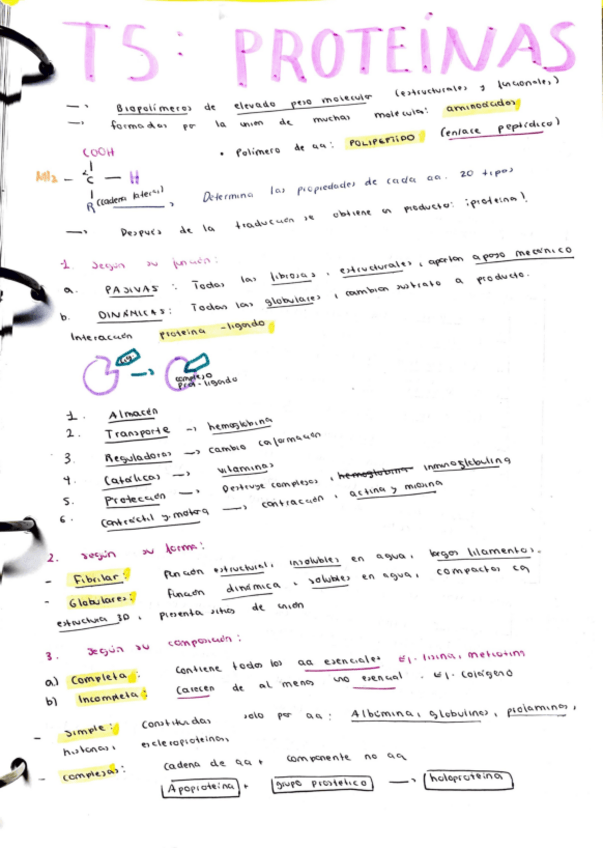 T5: PROTEÍNAS
→ Biopolímeros de elevado peso molecular (estructurales y funcionales)
→ formadas por la unión de muchas molecula: aminoácidos
• Polímero de aa: POLIPEPTIDO (enlace peptídico)
COOH
NH2 - C - H
R (cadena lateral), Determina las propiedades de cada aa. 20 tipos
→ Después de la traducción se obtiene un producto: ¡proteína!
1. Según su función:
a. PASIVAS: Todas las fibrosas, estructurales, aportan apoyo mecánico
b. DINÁMICAS: Todas las globulares, cambian sustrato a producto.
Interacción proteína-ligando
→ complejo
prot-ligando
1. Almacén
2. Transporte → hemoglobina
3. Reguladoras → cambio conformación
4. Catálicas → vitaminas
5. Protección → Destruye complejos, hemoglobina inmunoglobulina
6. Contráctil y motora → contracción, actina y miosina
2. Según su forma:
- Fibrilar: Función estructural, insolubles en agua, largos filamentos.
- Globulares: función dinámica, solubles en agua, compactas ca
estructura 3D, presenta sitios de unión
3. Según su composición:
a) Completa: Contiene todos los aa esenciales Ej. lisina, metionina
b) Incompleta: Carecen de al menos uno esencial. Ej. Colágeno
- Simple: Constituidas solo por aa: Albúmina, globulinas, prolaminas,
histonas, escleroproteínas,
- Complejas: cadena de aa + componente no aa
Apoproteína + grupo prostético → holoproteína